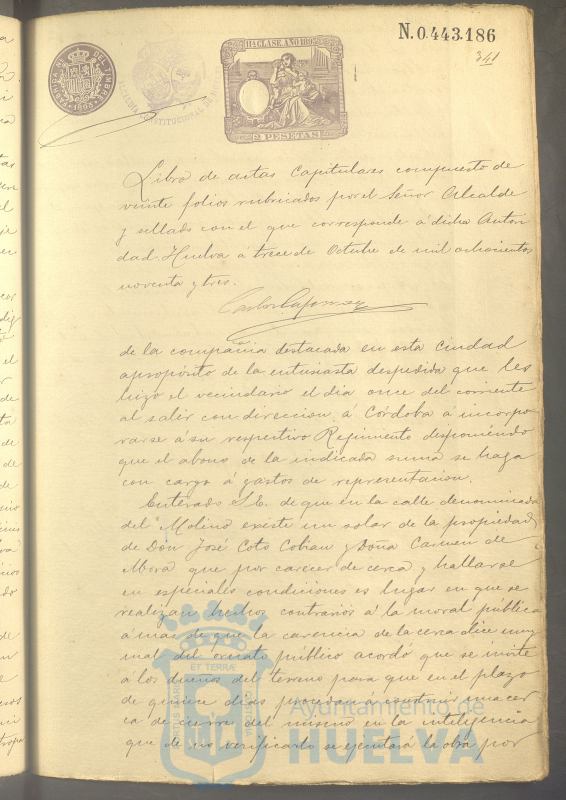 N.0.443.186
341
11ª CLASE. AÑO 1893
2 PESETAS
Libro de actas Capitulares compuesto de
veinte folios rubricados por el Señor Alcalde
y sellado con el que corresponde á dicha Autori
dad. Huelva á trece de Octubre de mil ochocientos
noventa y tres.
de la compañia destacada en esta Ciudad
apropósito de la entusiasta despedida que les
hizo el vecindario el dia once del corriente
al salir con direccion á Córdoba á incorpo
rarse á su respectivo Regimiento disponiendo
que el abono de la indicada suma se haga
con cargo á gastos de representacion.
Enterado S.E. de que en la calle denominada
del Molino existe un solar de la propiedad
de Don José Coto Cobian y Doña Carmen de
Mora que por carecer de cerca y hallarse
en especiales condiciones es lugar en que se
realizan hechos contrarios á la moral pública
á mas de que la carencia de la cerca dice muy
mal del ornato público acordó que se invite
á los dueños del terreno para que en el plazo
de quince dias procedan á construir una cer
ca de cierre del mismo en la inteligencia
que de no verificarlo se ejecutará la obra por
Ayuntamiento de
HUELVA